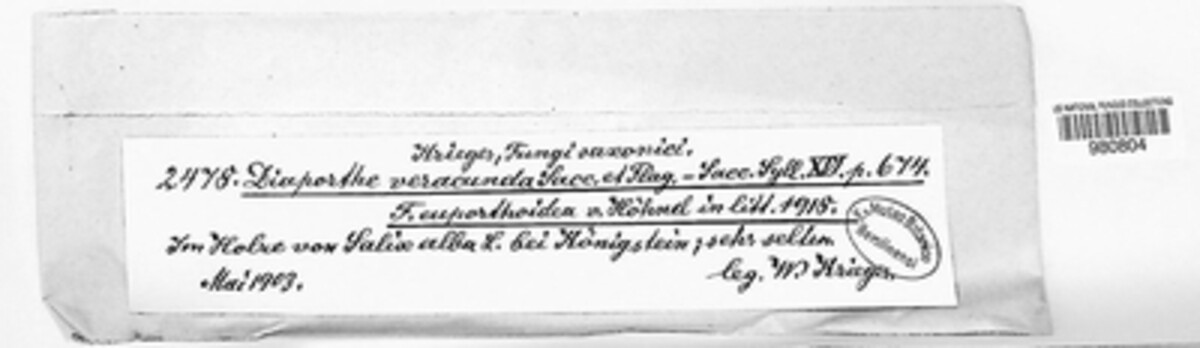 Krieger, Fungi saxonici.
2478. Diaporthe veracunda Sacc. et Flag. = Sacc. Syll. XVI. p. 674.
F. euporthoidea v. Höhnel in litt. 1918.
Im Holze von Salix alba L. bei Königstein; sehr selten
Mai 1903.
leg. W. Krieger.
US NATIONAL FUNGUS COLLECTIONS
980804